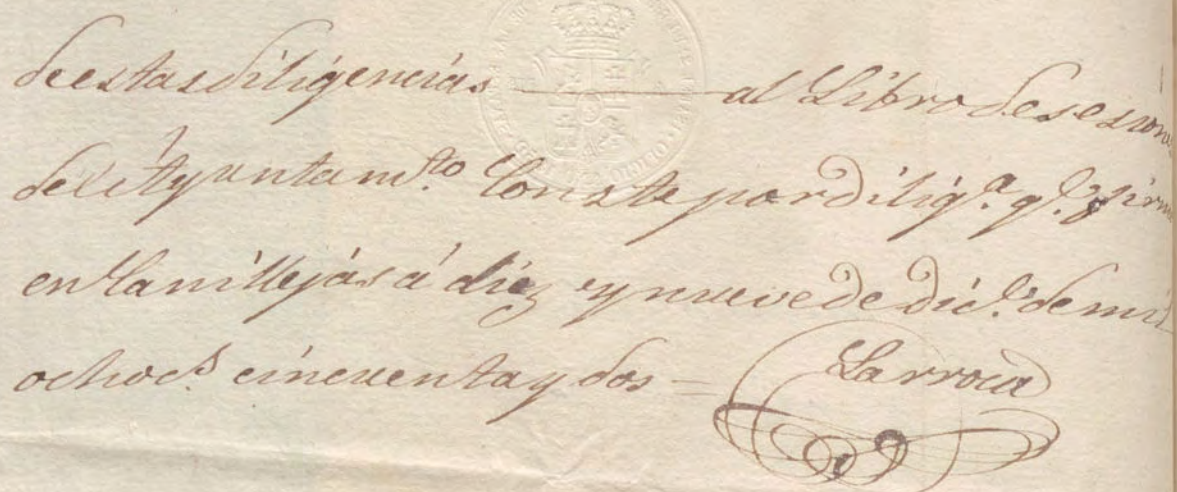 de estas diligencias — al Libro de sesion
del Ayuntam.to Conste por dilig.a q.e firm
en Canillejas á diez y nueve de Dic.e de mil
ochoc.s cincuenta y dos =
Larroca